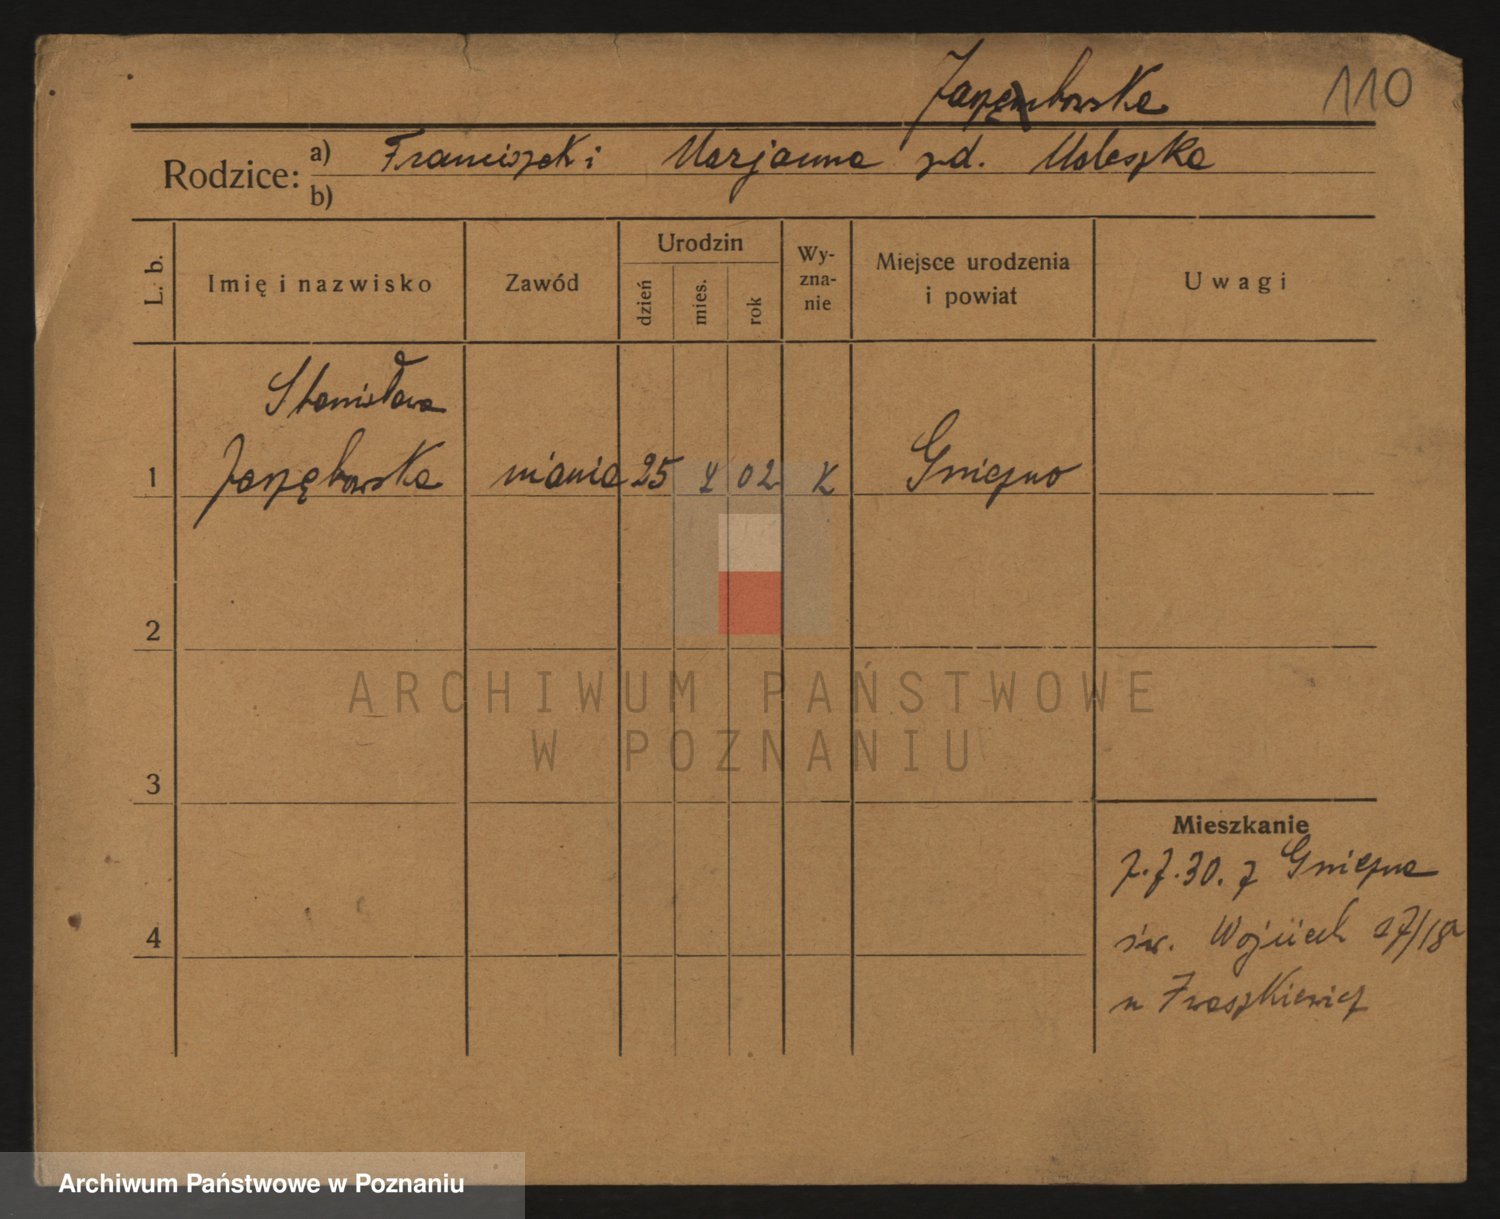 Jarzębowska 110
Rodzice: a) Franciszek i Marjanna zd. Maleszka
b)
L. b. Imię i nazwisko Zawód Urodzin dzień mies. rok Wy-zna-nie Miejsce urodzenia i powiat Uwagi
Stanisława
1 Jarzębowska niania 25 02 K Gniezno
2
ARCHIWUM PAŃSTWOWE
W POZNANIU
3
Mieszkanie
7.7.30. z Gniezna
4 św. Wojciech 17/18a
u Iwaszkiewicz
Archiwum Państwowe w Poznaniu